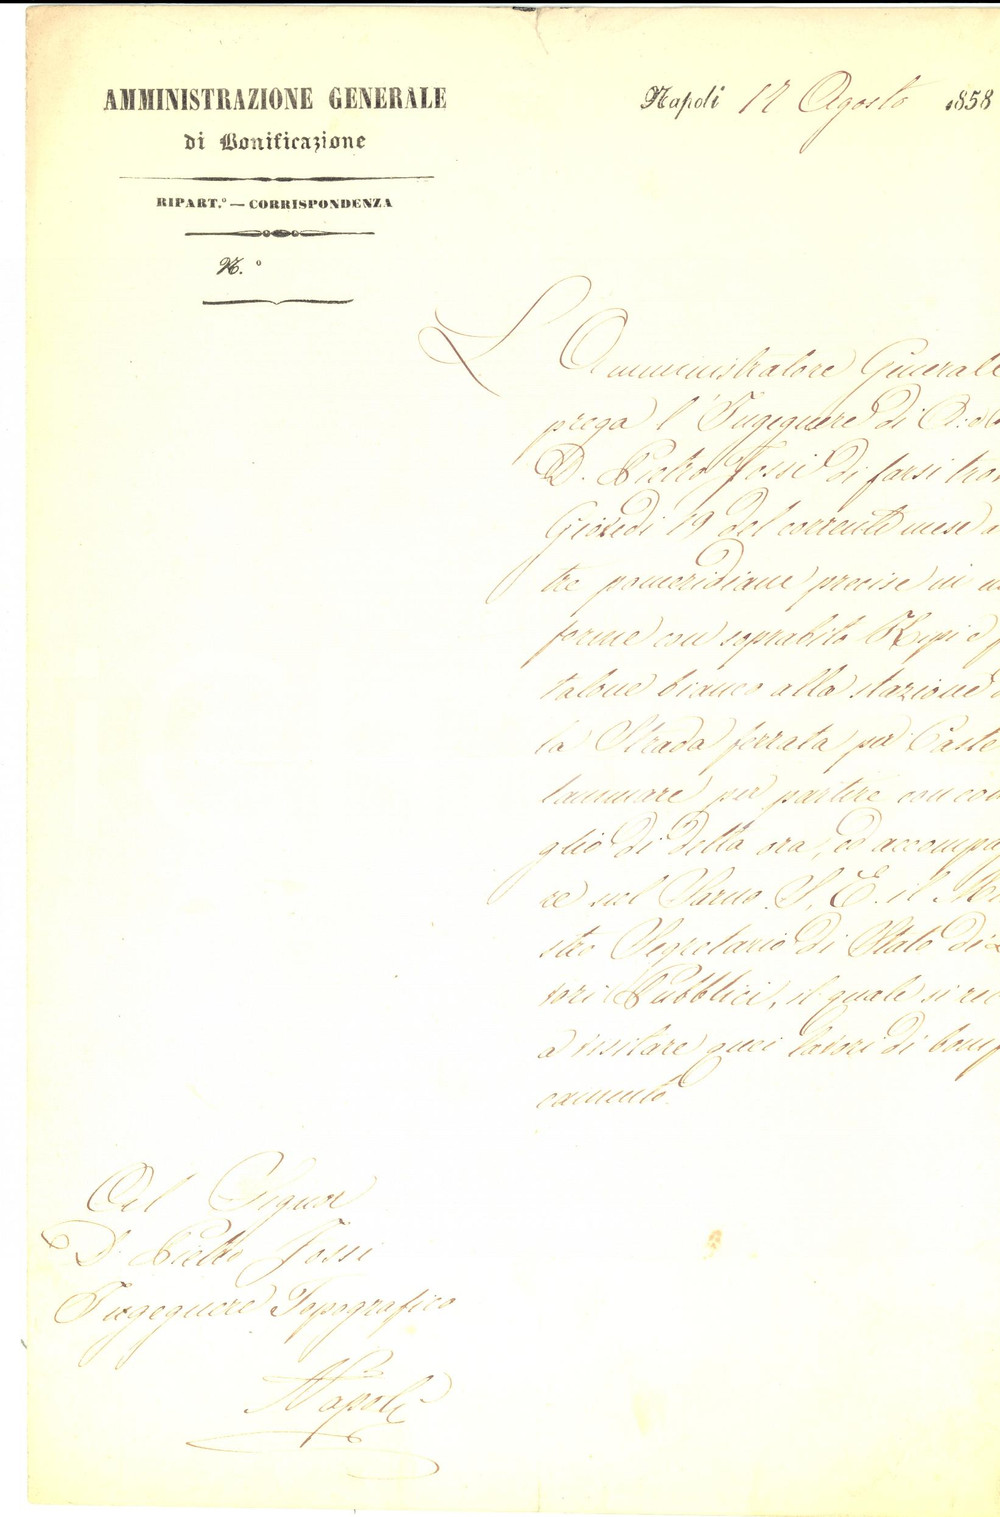 AMMINISTRAZIONE GENERALE
di Bonificazione
RIPART.° — CORRISPONDENZA
N.°
Napoli 17 Agosto 1858
L'Amministratore Generale
prega l'Ingegnere di
D. Pietro Fossi di farsi tro
Giovedì 19 del corrente mese a
tre pomeridiane precise in u
forme con soprabito Kepi e p
talone bianco alla stazione d
la Strada ferrata per Caste
lammare per partire con con
glio di detta ora, ed accompa
re sul Sarno S. E. il Mi
stro Segretario di Stato di
vori Pubblici, il quale si re
a visitare quei lavori di bonif
camento.
Al Signor
D. Pietro Fossi
Ingegnere Topografico
Napoli